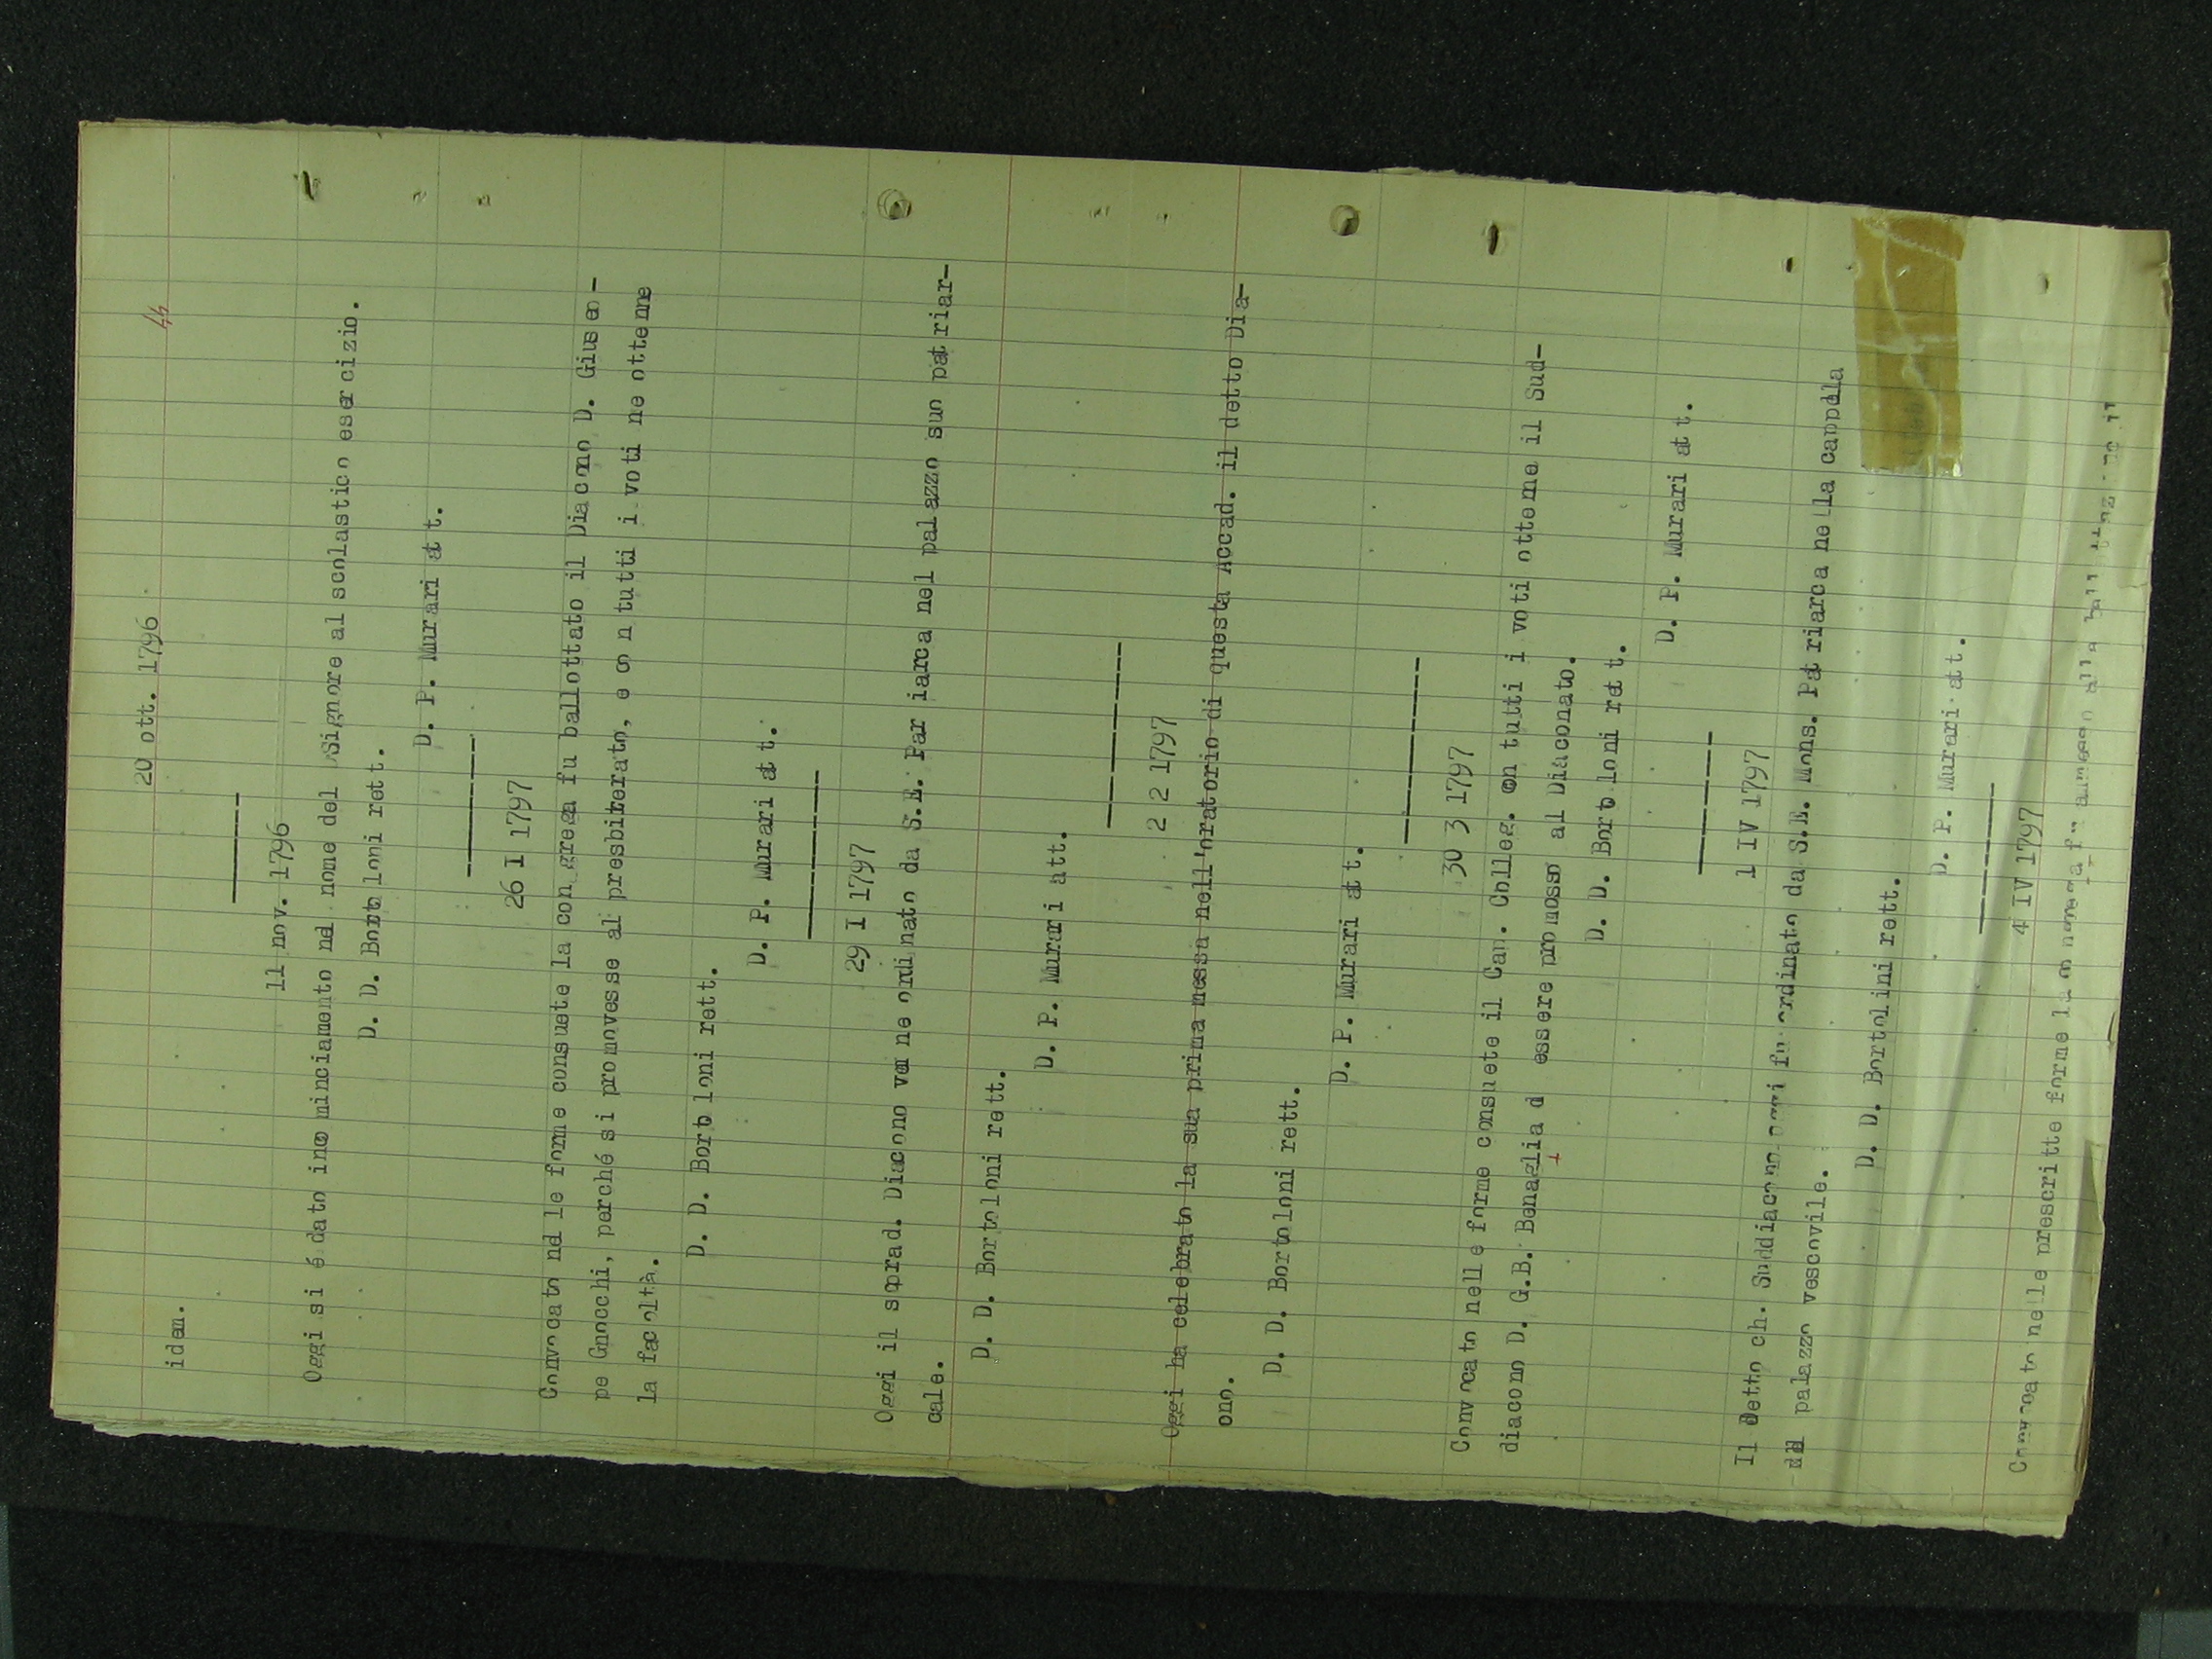 44
20 ott. 1796
idem.
11 nov. 1796
Oggi si é dato incominciamento nel nome del Signore al scolastico esercizio.
D. D. Bortoloni rett.
D. P. Murari att.
26 I 1797
Convocato nelle forme consuete la congrega fu ballottato il Diacono D. Giusep-
pe Gnocchi, perché si promovesse al presbiterato, e con tutti i voti ne ottenne
la facoltà.
D. D. Bortoloni rett.
D. P. Murari att.
29 I 1797
Oggi il soprad. Diacono venne ordinato da S.E. Patriarca nel palazzo suo patriar-
cale.
D. D. Bortoloni rett.
D. P. Murari att.
2 2 1797
Oggi ha celebrato la sua prima messa nell'oratorio di questa Accad. il detto Dia-
ono.
D. D. Bortoloni rett.
D. P. Murari att.
30 3 1797
Convocato nelle forme consuete il Can. Colleg. con tutti i voti ottenne il Sud-
diacono D. G.B. Benaglia d essere promosso al Diaconato.
D. D. Bortoloni rett.
D. P. Murari att.
1 IV 1797
Il detto ch. Suddiacono oggi fu ordinato da S.E. Mons. Patriarca nella cappella
del palazzo vescovile.
D. D. Bortolini rett.
D. P. Murari att.
4 IV 1797
Convocato nelle prescritte forme la fu ammesso alla